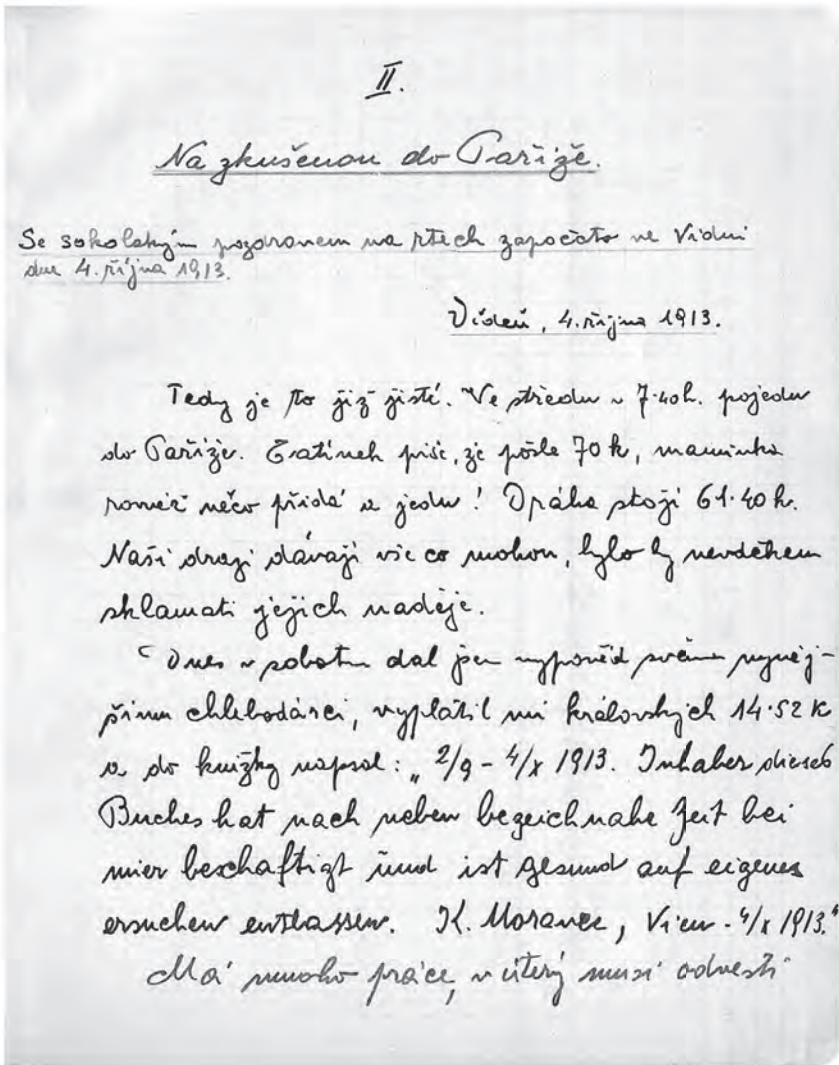 II.
Na zkušenou do Paříže.
Se sokolským pozdravem na rtech započato ve Vídni
dne 4. října 1913.
Vídeň, 4. října 1913.
Tedy je to již jisté. Ve středu v 7·40h. pojedu
do Paříže. Tatínek píše, že pošle 70 k, maminka
rovněž něco přidá a jedu! Dráha stojí 61·40 k.
Naši drazí dávají vše co mohou, bylo by nevděkem
sklamati jejich naděje.
Dnes v sobotu dal jsem výpověď svému nyněj-
šímu chlebodárci, vyplatil mi královských 14·52 K
a do knížky napsal: „2/9 - 4/X 1913. Inhaber dieses
Buches hat nach neben bezeichnahe Zeit bei
mier beschaftigt und ist gesund auf eigenes
ersuchen entlassen. K. Moravec, Vien - 4/X 1913."
Má mnoho práce, v úterý musí odvésti